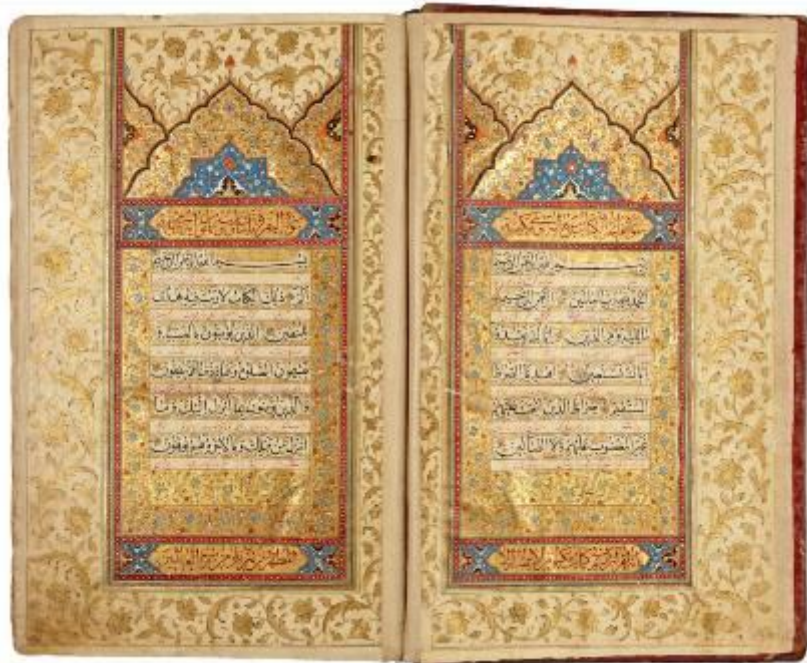 بسم الله الرحمن الرحيم
الحمد لله رب العالمين الرحمن الرحيم
مالك يوم الدين اياك نعبد و
اياك نستعين اهدنا الصراط
المستقيم صراط الذين انعمت عليهم
غير المغضوب عليهم ولا الضالين
انه لقرآن كريم في كتاب مكنون لا يمسه الا
بسم الله الرحمن الرحيم
الم ذلك الكتاب لا ريب فيه هدى
للمتقين الذين يؤمنون بالغيب و
يقيمون الصلوة ومما رزقناهم ينفقون
والذين يؤمنون بما انزل اليك وما
انزل من قبلك وبالاخرة هم يوقنون
المطهرون تنزيل من رب العالمين